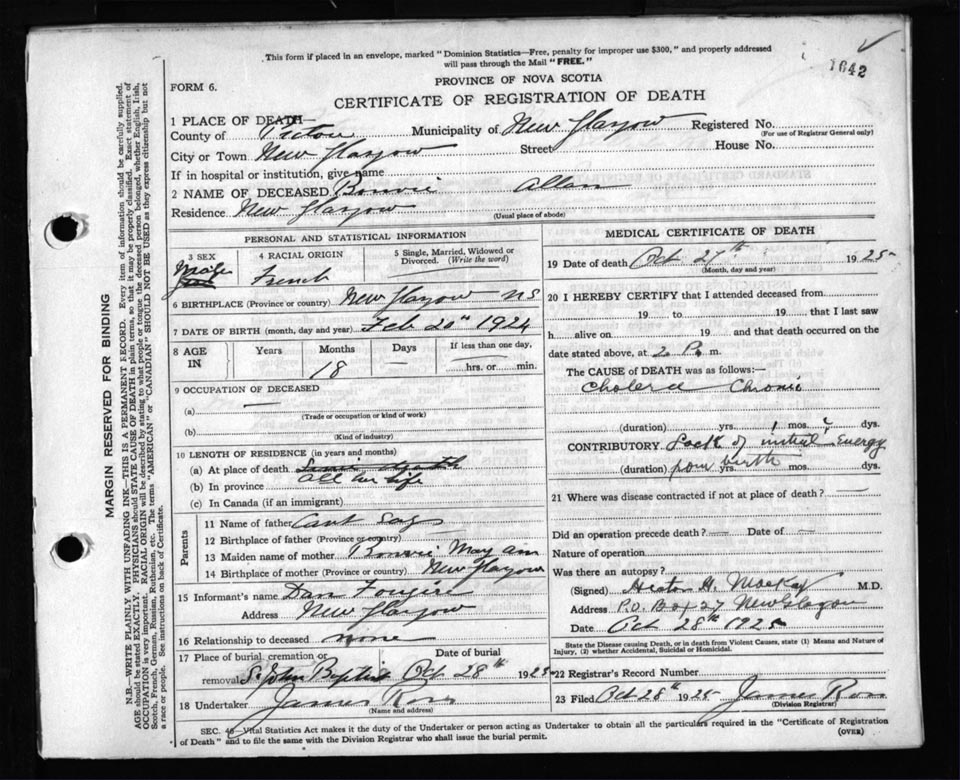 This form if placed in an envelope, marked "Dominion Statistics—Free, penalty for improper use $300," and properly addressed
will pass through the Mail "FREE."
1642
FORM 6.
PROVINCE OF NOVA SCOTIA
CERTIFICATE OF REGISTRATION OF DEATH
1 PLACE OF DEATH—
County of Pictou Municipality of New Glasgow Registered No.
(For use of Registrar General only)
City or Town New Glasgow Street House No.
If in hospital or institution, give name
2 NAME OF DECEASED Bonvie Allan
Residence New Glasgow
(Usual place of abode)
PERSONAL AND STATISTICAL INFORMATION
3 SEX
Male
4 RACIAL ORIGIN
French
5 Single, Married, Widowed or
Divorced. (Write the word)
6 BIRTHPLACE (Province or country) New Glasgow NS
7 DATE OF BIRTH (month, day and year) Feb 20th 1924
8 AGE IN
Years Months Days If less than one day,
18 hrs. or min.
9 OCCUPATION OF DECEASED
(a) —
(Trade or occupation or kind of work)
(b)
(Kind of industry)
10 LENGTH OF RESIDENCE (in years and months)
(a) At place of death
(b) In province all her life
(c) In Canada (if an immigrant)
Parents
11 Name of father Cant Say
12 Birthplace of father (Province or country)
13 Maiden name of mother Bonvie May Ann
14 Birthplace of mother (Province or country) New Glasgow
15 Informant's name Dan Fougere
Address New Glasgow
16 Relationship to deceased none
17 Place of burial, cremation or Date of burial
removal St John Baptist Oct 28th 1925
18 Undertaker James Ross
(Name and address)
MEDICAL CERTIFICATE OF DEATH
19 Date of death Oct 27th 1925
(Month, day and year)
20 I HEREBY CERTIFY that I attended deceased from
19 to 19 that I last saw
h alive on 19 and that death occurred on the
date stated above, at 2 P. m.
The CAUSE of DEATH was as follows:—
Cholera Chronic
(duration) yrs. 1 mos. dys.
CONTRIBUTORY Lack of initial Energy
(duration) from birth yrs. mos. dys.
21 Where was disease contracted if not at place of death? —
Did an operation precede death? — Date of —
Nature of operation
Was there an autopsy?
(Signed) H. MacKay M.D.
Address P.O. Box 27 New Glasgow
Date Oct 28th 1925
State the Disease causing Death, or in death from Violent Causes, state (1) Means and Nature of
Injury, (2) whether Accidental, Suicidal or Homicidal.
22 Registrar's Record Number
23 Filed Oct 28th 1925 James Ross
(Division Registrar)
SEC. 48—Vital Statistics Act makes it the duty of the Undertaker or person acting as Undertaker to obtain all the particulars required in the "Certificate of Registration
of Death" and to file the same with the Division Registrar who shall issue the burial permit.
(OVER)
MARGIN RESERVED FOR BINDING
N.B.—WRITE PLAINLY WITH UNFADING INK—THIS IS A PERMANENT RECORD. Every item of information should be carefully supplied.
AGE should be stated EXACTLY. PHYSICIANS should STATE CAUSE OF DEATH in plain terms, so that it may be properly classified. Exact statement of
OCCUPATION is very important. RACIAL ORIGIN will be described by stating to what people or tongue the deceased person belonged, whether English, Irish,
Scotch, French, German, Russian, Ruthenian, etc. The terms "AMERICAN" or "CANADIAN" SHOULD NOT BE USED as they express citizenship but not
a race or people. See instructions on back of Certificate.